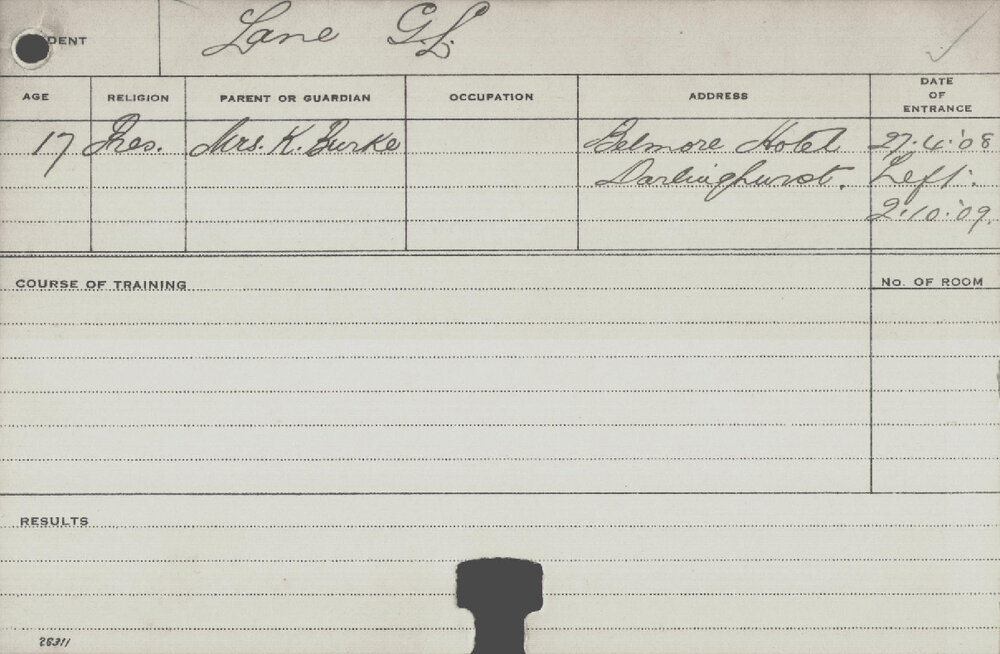 DENT Lane G.L.
AGE RELIGION PARENT OR GUARDIAN OCCUPATION ADDRESS DATE OF ENTRANCE
17 Pres. Mrs. K. Burke Belmore Hotel 27.4.'08
Darlinghurst. Left.
2.10.'09.
COURSE OF TRAINING No. OF ROOM
RESULTS
26311